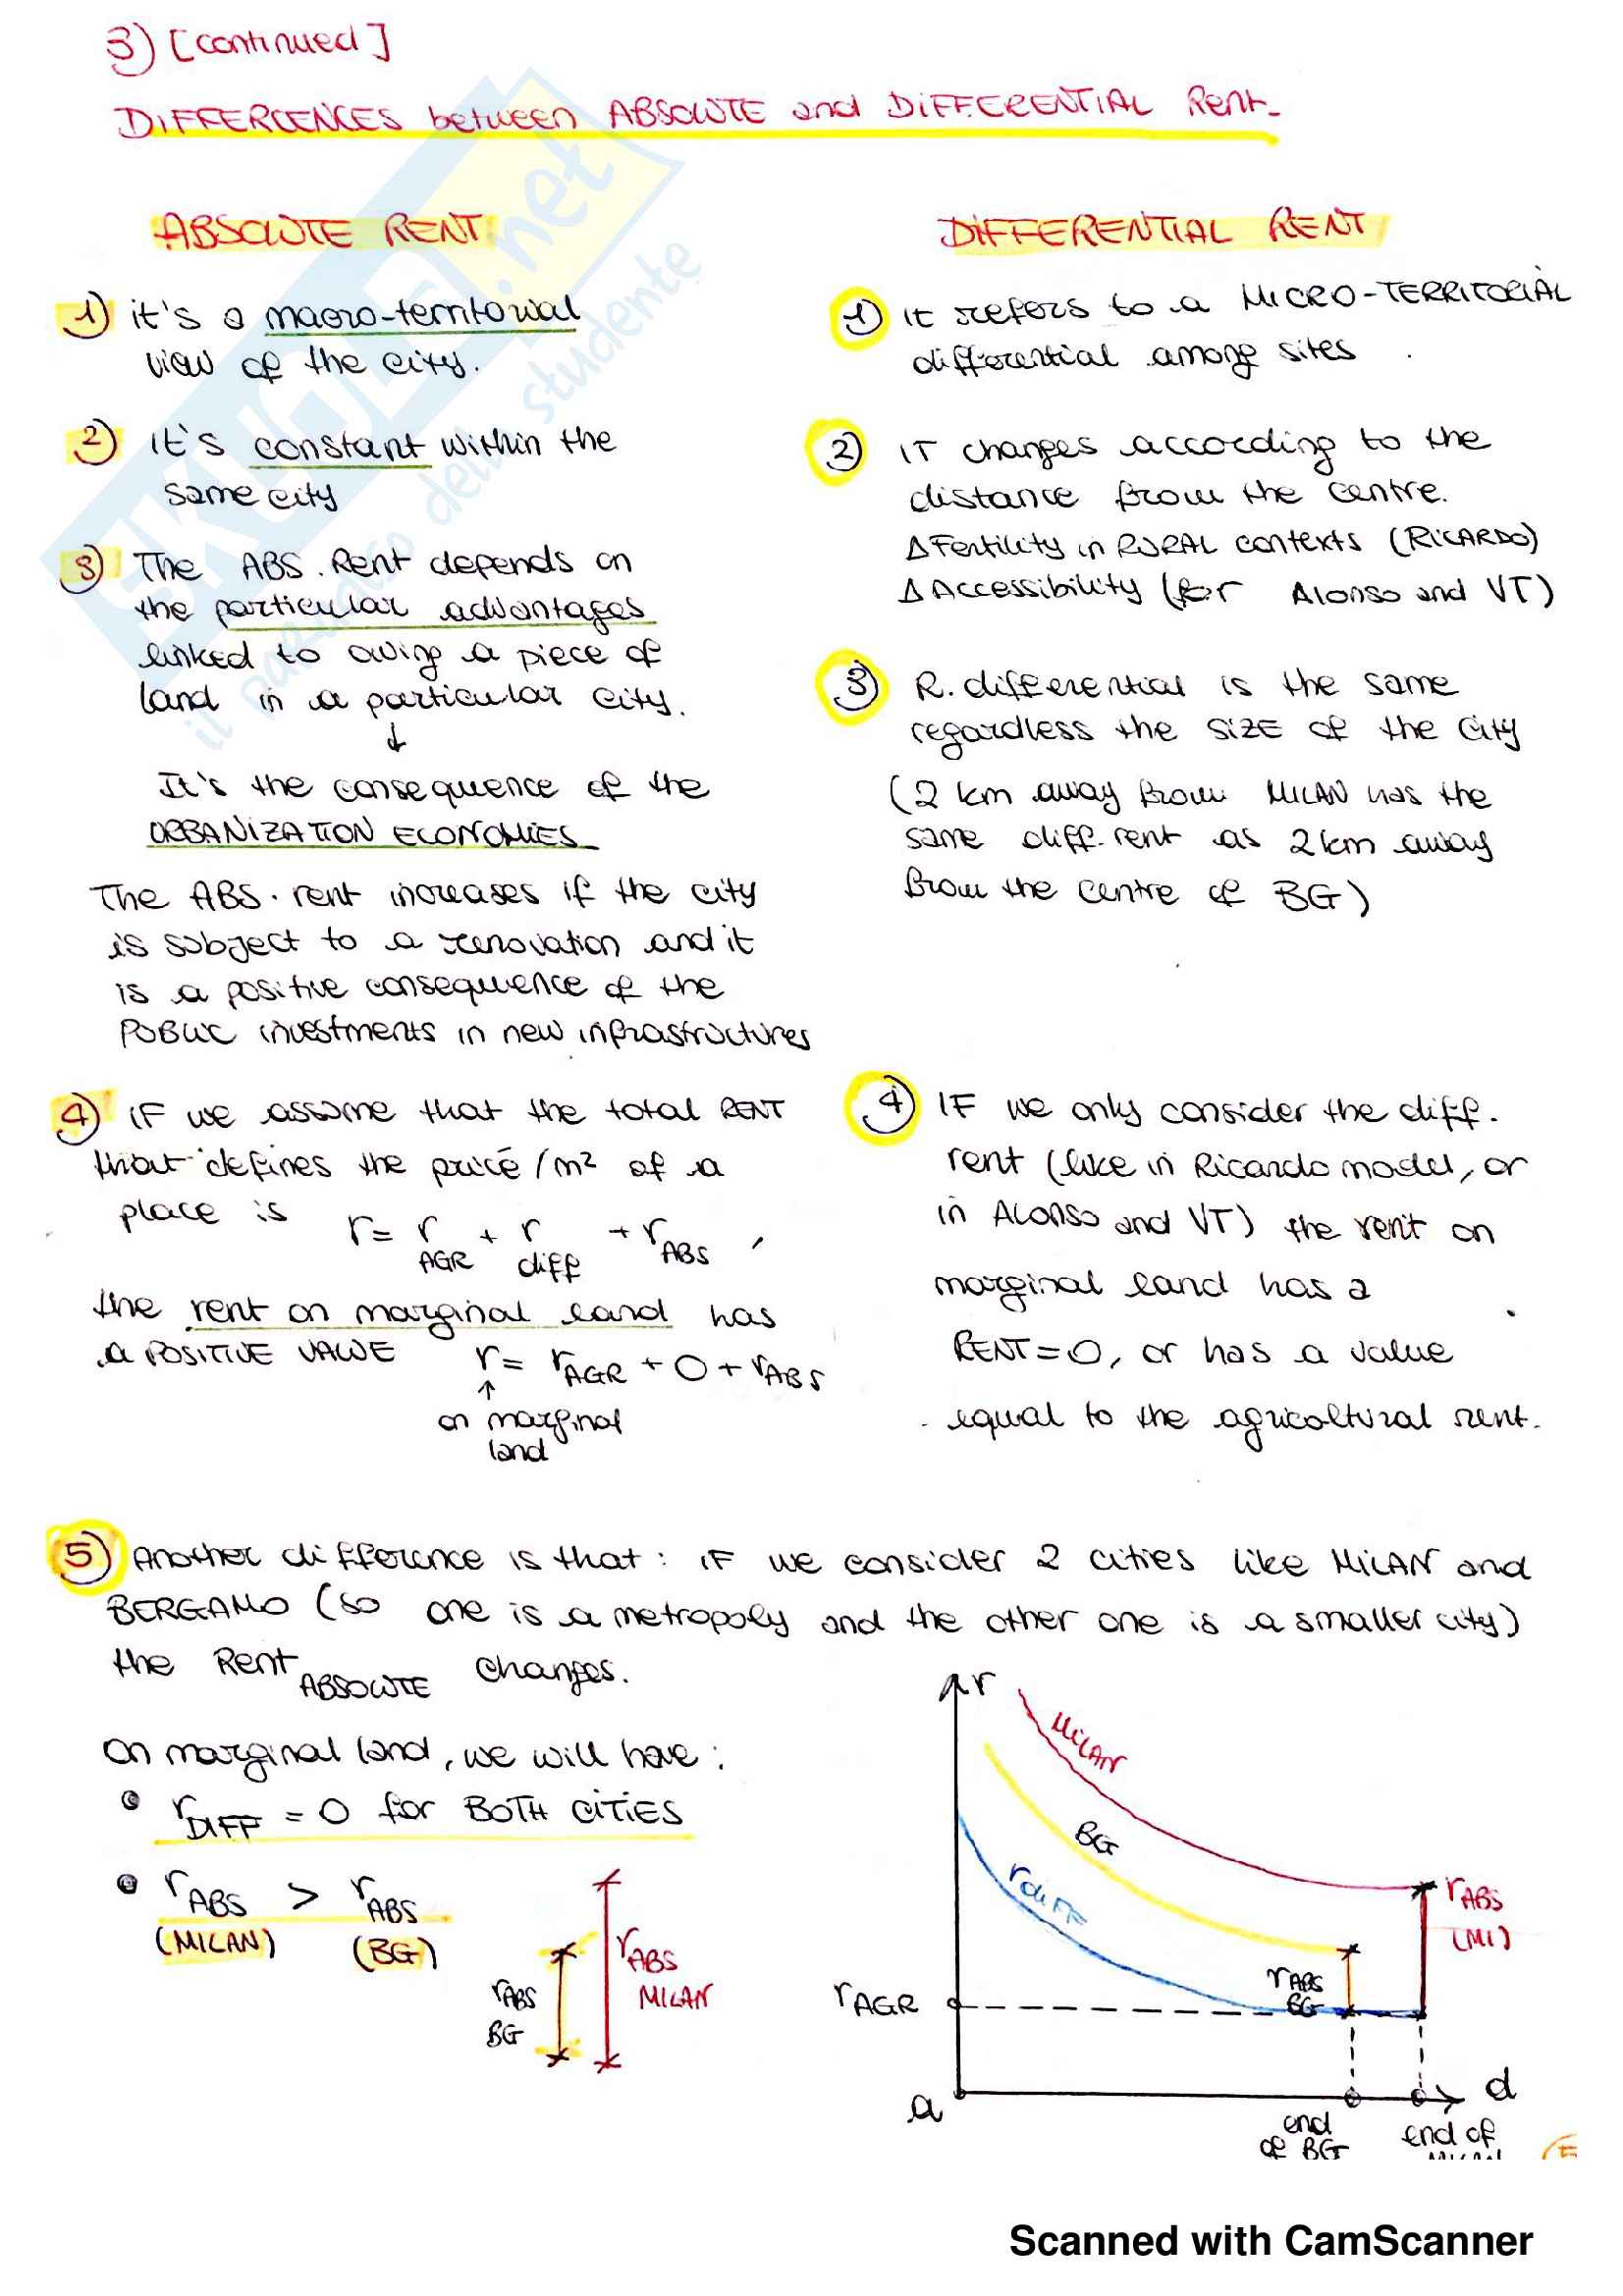 3) [continued]
DIFFERCENCES between ABSOLUTE and DIFFERENTIAL Rent-
ABSOLUTE RENT
1) it's a macro-territorial
view of the city.
2) it's constant within the
same city
3) The ABS. Rent depends on
the particular advantages
linked to owing a piece of
land in a particular city.
↓
It's the consequence of the
URBANIZATION ECONOMIES
The ABS. rent increases if the city
is subject to a renovation and it
is a positive consequence of the
PUBLIC investments in new infrastructures
4) IF we assume that the total RENT
that defines the price/m² of a
place is r = r AGR + r diff + r ABS,
the rent on marginal land has
a POSITIVE VALUE r = rAGR + 0 + rABS
↑
on marginal
land
DIFFERENTIAL RENT
1) It refers to a MICRO-TERRITORIAL
differential among sites
2) IT changes according to the
distance from the centre.
Δ Fertility in RURAL contexts (RICARDO)
Δ Accessibility (for Alonso and VT)
3) R. differential is the same
regardless the SIZE of the City
(2 km away from MILAN has the
same diff. rent as 2 km away
from the centre of BG)
4) IF we only consider the diff.
rent (like in Ricardo model, or
in Alonso and VT) the rent on
marginal land has a
RENT=0, or has a value
equal to the agricoltural rent.
5) Another difference is that: IF we consider 2 cities like MILAN and
BERGAMO (so one is a metropoly and the other one is a smaller city)
the Rent ABSOLUTE changes.
On marginal land, we will have:
• rDIFF = 0 for BOTH CITIES
• rABS > rABS
(MILAN) (BG)
rABS
BG
rABS
MILAN
r
MILAN
BG
rdiff
rABS
(MI)
rABS
BG
rAGR
a
d
end
of BG
end of
MILAN
Scanned with CamScanner
SKUOLA.net
il paradiso dello studente